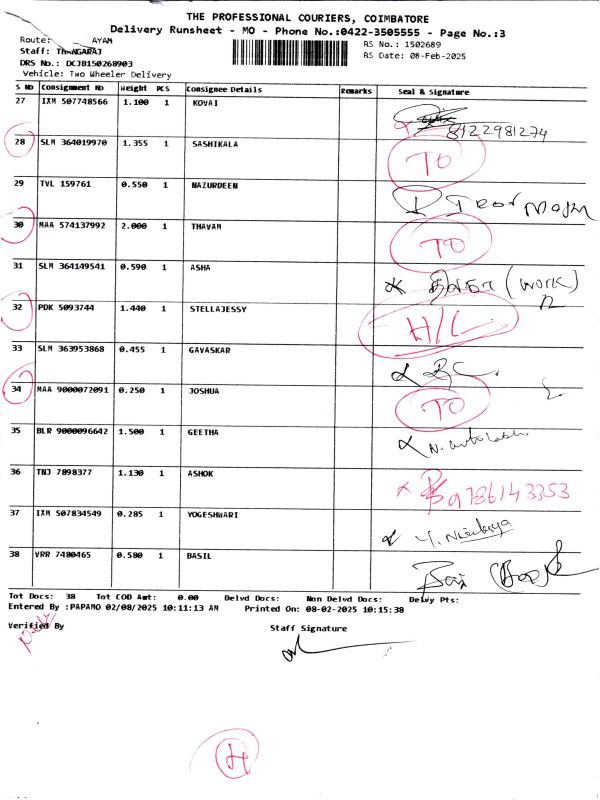 THE PROFESSIONAL COURIERS, COIMBATORE
Delivery Runsheet - MO - Phone No.:0422-3505555 - Page No.:3
Route: AYAM
RS No.: 1502689
Staff: THANGARAJ
RS Date: 08-Feb-2025
DRS No.: DCJB150268903
Vehicle: Two Wheeler Delivery
S No Consignment No Weight PCS Consignee Details Remarks Seal & Signature
27 IXM 507748566 1.100 1 KOVAI
8122981274
28 SLM 364019970 1.355 1 SASHIKALA TO
29 TVL 159761 0.550 1 NAZURDEEN
30 MAA 574137992 2.000 1 THAVAM TO
31 SLM 364149541 0.590 1 ASHA (work)
32 PDK 5093744 1.440 1 STELLAJESSY H/L
33 SLM 363953868 0.455 1 GAVASKAR
34 MAA 9000072091 0.250 1 JOSHUA TO
35 BLR 9000096642 1.500 1 GEETHA
36 TNJ 7898377 1.130 1 ASHOK 9786143353
37 IXM 507834549 0.285 1 YOGESHWARI
38 VRR 7480465 0.580 1 BASIL
Tot Docs: 38 Tot COD Amt: 0.00 Delvd Docs: Non Delvd Docs: Delvy Pts:
Entered By :PAPAMO 02/08/2025 10:11:13 AM Printed On: 08-02-2025 10:15:38
Verified By Staff Signature
H